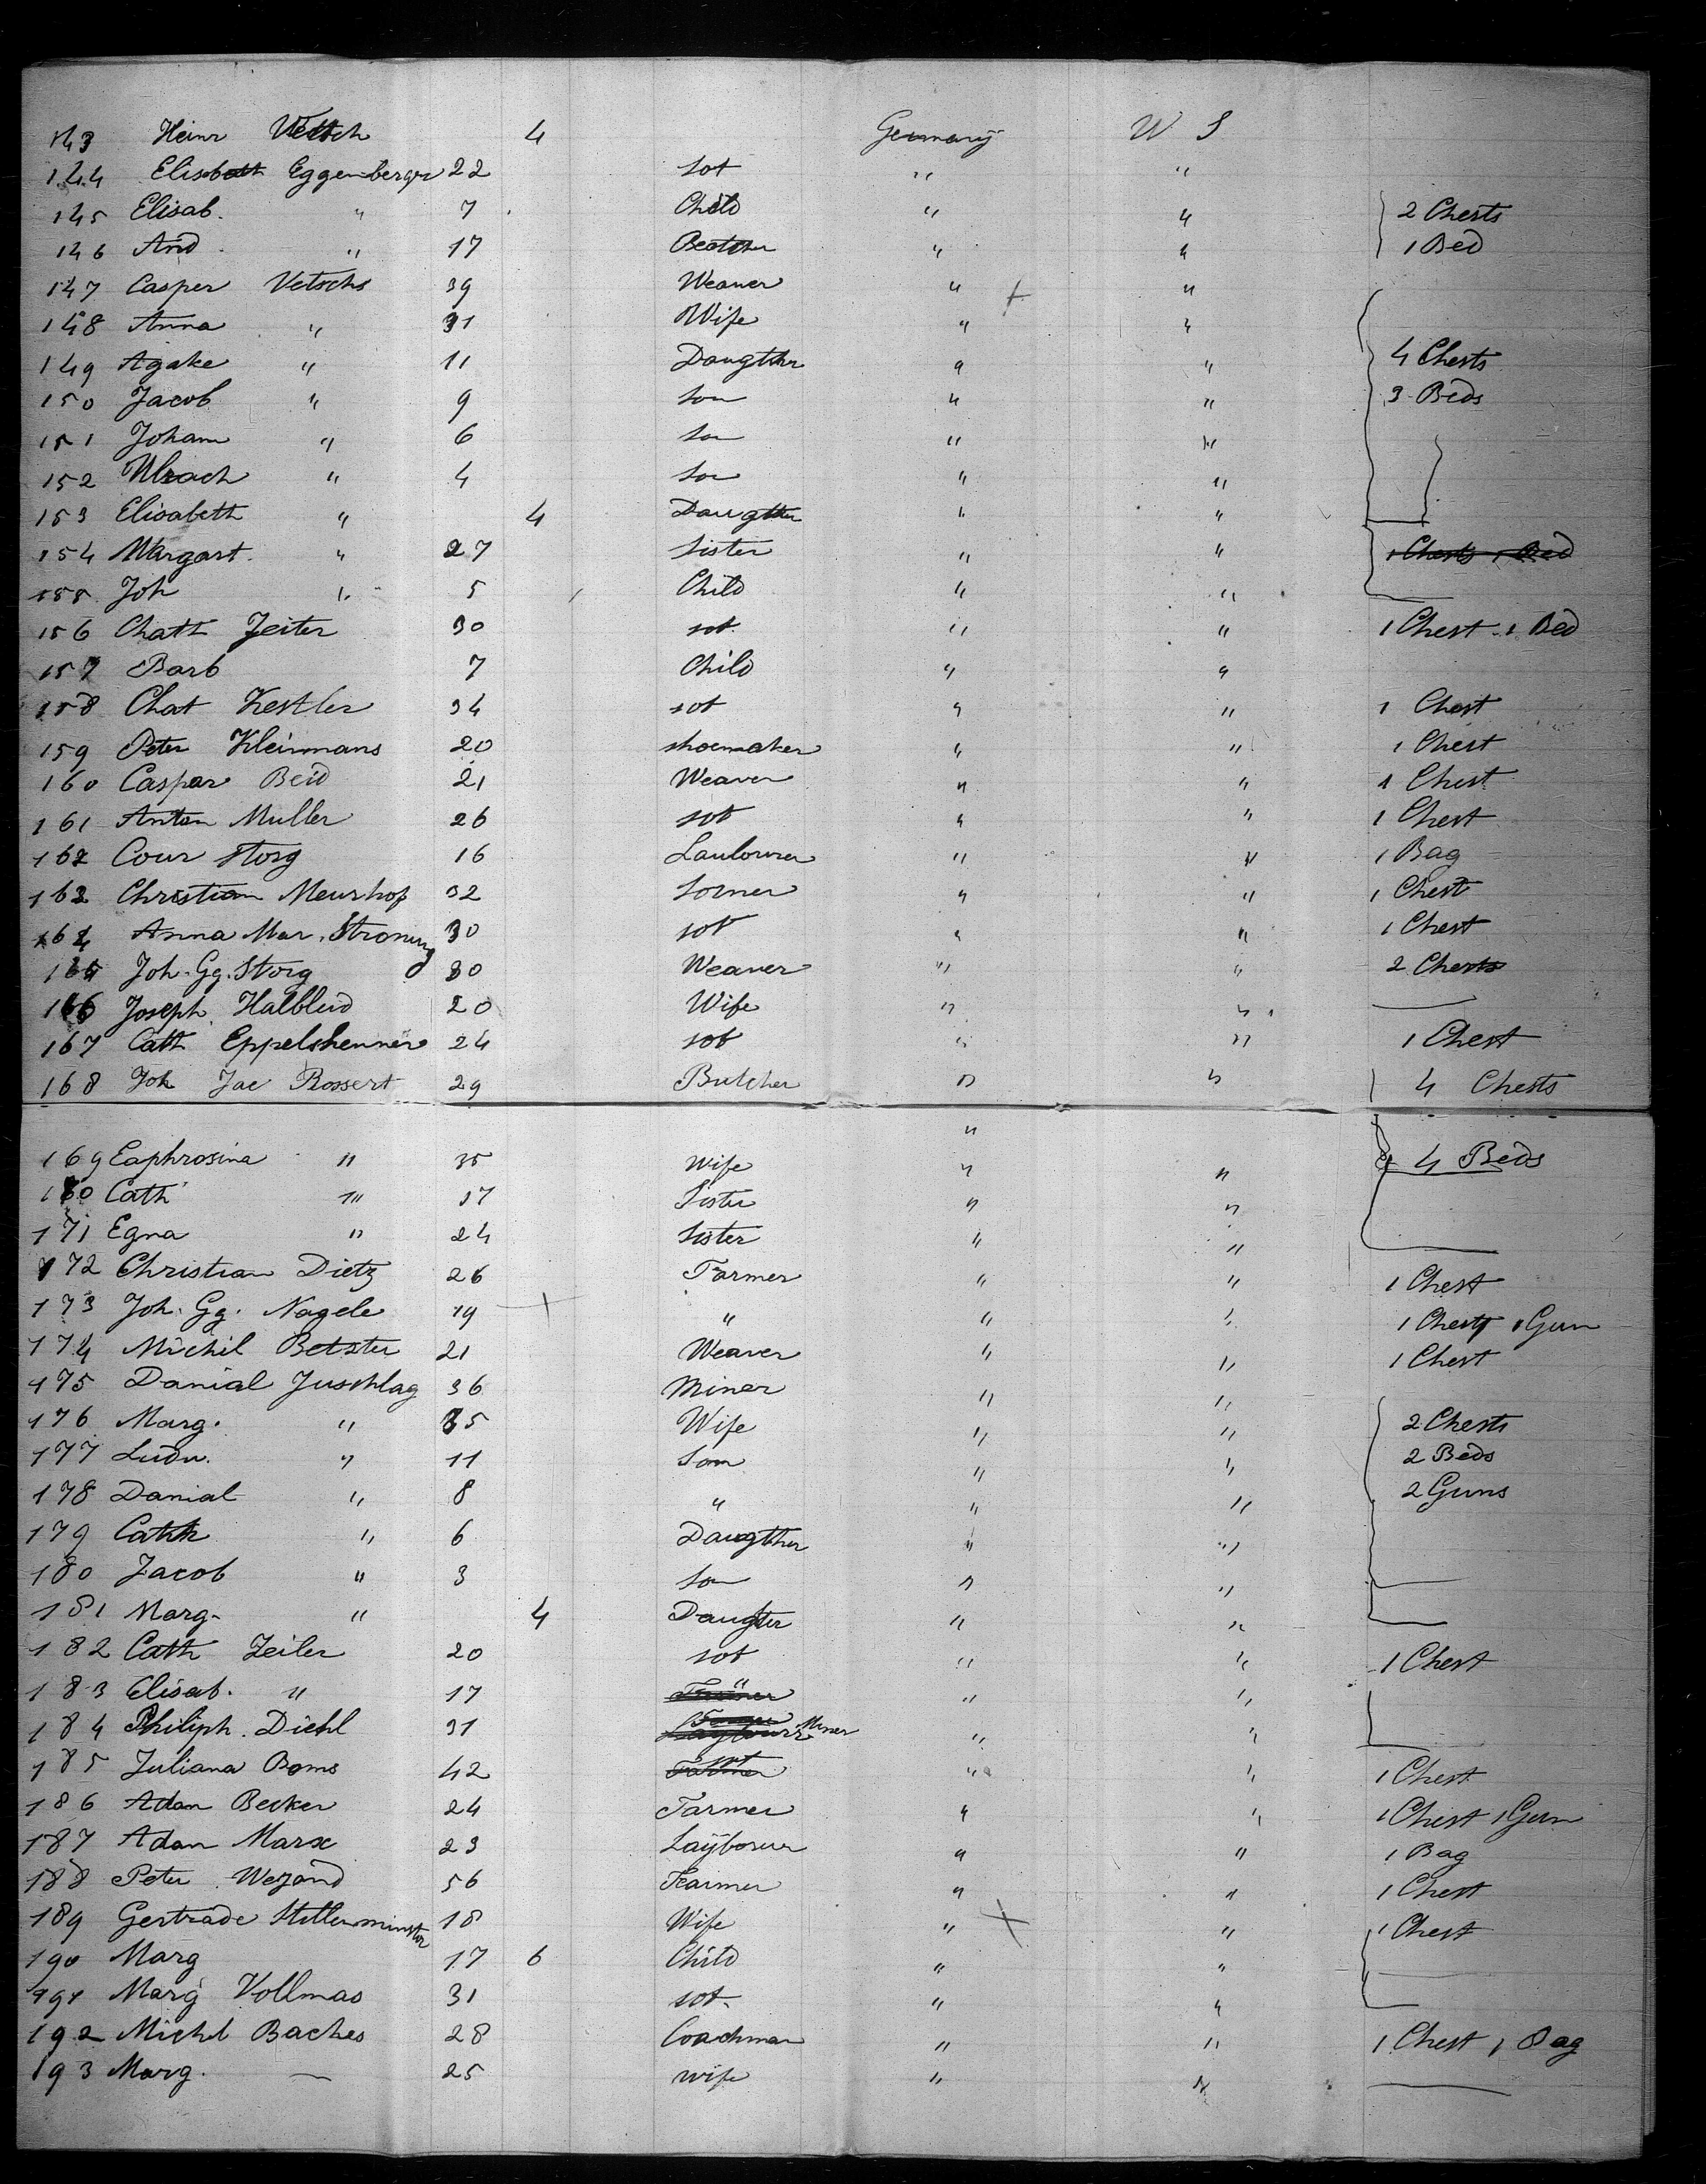 143 Heinr Vetsch 4 Germany W S
144 Elisbett Eggenberger 22 sot " "
145 Elisab. " 7 Child " " 2 Chests
146 And " 17 " " 1 Bed
147 Casper Vetschs 39 Weaver " + "
148 Anna " 31 Wife " "
149 Agake " 11 Daugther " " 4 Chests
150 Jacob " 9 son " " 3 Beds
151 Joham " 6 son " "
152 Ulrach " 4 son " "
153 Elisabeth " 4 Daugther " "
154 Margart. " 27 sister " " 1 Chests 1 Bed
155 Joh " 5 Child " "
156 Chatt Zeiter 30 sot " " 1 Chest 1 Bed
157 Barb 7 Child " "
158 Chat Kestler 34 sot " " 1 Chest
159 Peter Kleinmans 20 shoemaker " " 1 Chest
160 Caspar Beid 21 Weaver " " 1 Chest
161 Anton Muller 26 sot " " 1 Chest
162 Cour Storg 16 " " 1 Bag
163 Christian Meushof 32 " " 1 Chest
164 Anna Mar. Stronung 30 sot " " 1 Chest
165 Joh. Gg. Storg 30 Weaver " " 2 Chests
166 Joseph Halbleid 20 Wife " "
167 Cath Eppelshenner 24 sot " " 1 Chest
168 Joh Jac Rossert 29 Butcher " " 4 Chests
"
169 Eaphrosina " 35 Wife " " 4 Beds
180 Cath " 17 Sister " "
171 Egna " 24 Sister " "
172 Christian Dietz 26 Farmer " " 1 Chest
173 Joh. Gg. Nagele 19 + " " " 1 Chest 1 Gun
174 Michil Betster 21 Weaver " " 1 Chest
175 Danial Juschlag 36 Miner " "
176 Marg. " 35 Wife " " 2 Chests
177 Ludw. " 11 Son " " 2 Beds
178 Danial " 8 " " " 2 Guns
179 Cathr " 6 Daugther " "
180 Jacob " 3 son " "
181 Marg. " 4 Daugter " "
182 Cath Zeiler 20 sot " " 1 Chest
183 Elisab. " 17 " " "
184 Philiph. Diehl 31 Miner " "
185 Juliana Boms 42 sot " " 1 Chest
186 Adan Becker 24 Farmer " " 1 Chest 1 Gun
187 Adan Marx 23 Laybourer " " 1 Bag
188 Peter Weyand 56 Farmer " " 1 Chest
189 Gertrade Stettenminster 18 Wife " + " 1 Chest
190 Marg 17 6 Child " "
191 Marg Vollmas 31 sot. " "
192 Michl Baches 28 Coachman " " 1 Chest 1 Bag
193 Marg. — 25 wife " "